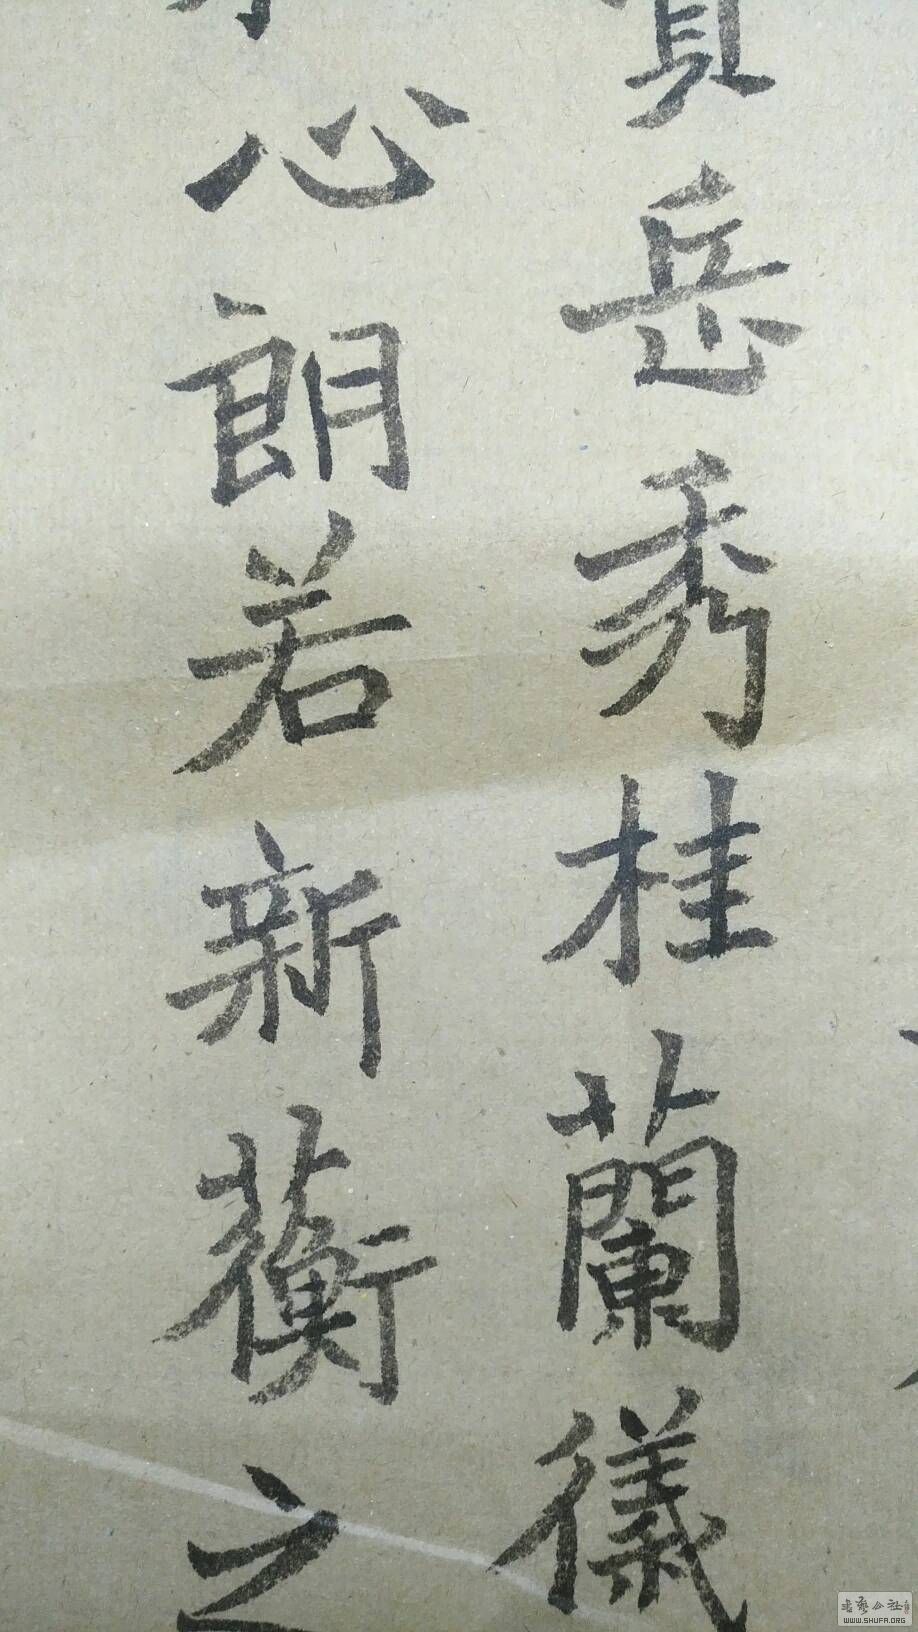 岳秀桂蘭儀
心朗若新蘅之
书艺公社
WWW.SHUFA.ORG